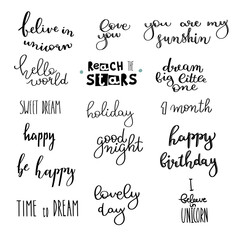 belive in
unicorn
love
you
you are my
sunshin
hello
world
REACH THE
STARS
dream
big little
one
SWEET DREAM
holiday
9 month
happy
good
night
happy
birthday
be happy
TIME to DREAM
lovely
day
I
believe
in
UNICORN